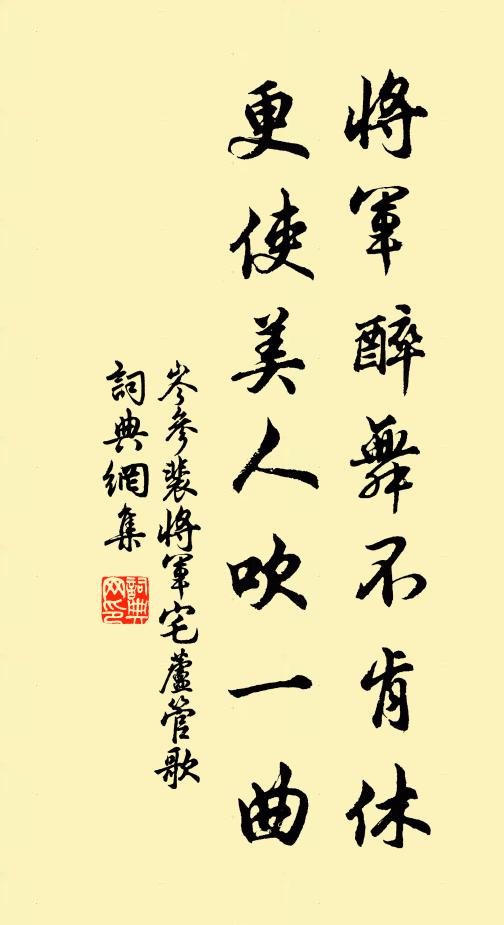 將軍醉舞不肯休
更使美人吹一曲
岑參裴將軍宅蘆管歌
詞典網集
詞典網印